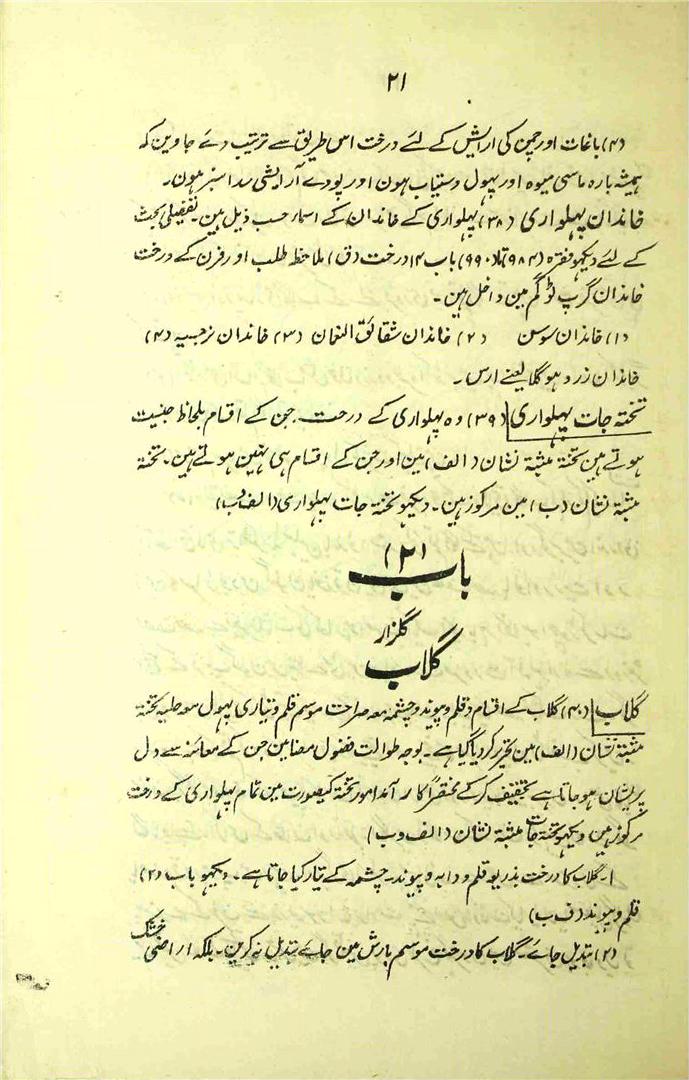 ۲۱
(۴) باغات اور چمن کی ارایش کے لئے درخت اس طریق سے ترتیب دے جاوین کہ
ہمیشہ بارہ ماسی میوہ اور پہول دستیاب ہون اور پودے آرایشی سدا سبز ہون۔
خاندان پہلواری (۳۸) پہلواری کے خاندان کے اسمار حسب ذیل ہین۔ تفصیلی بحث
کے لئے دیکہو فقرہ (۹۸۴ تا ۹۹۰) باب ۱۴ درخت (ق) ملاحظہ طلب اور فرن کے درخت
خاندان کرپ ٹوگم مین داخل ہین۔
(۱) خاندان سوسن (۲) خاندان شقائق النعمان (۳) خاندان نرجسیہ (۴)
خاندان زرد ہوگلا یعنے ارس۔
تختہ جات پہلواری (۳۹) وہ پہلواری کے درخت جن کے اقسام بلحاظ جنسیت
ہوتے ہین تختہ مثبتہ نشان (الف) مین اور جن کے اقسام ہی نہین ہوتے ہین۔ تختہ
مثبتہ نشان (ب) مین مرکوز ہین۔ دیکہو تختہ جات پہلواری (الف و ب)
باب (۲)
گلزار
گلاب
گلاب (۴۰) گلاب کے اقسام (قلم و پیوند و چشمہ معہ صراحت موسم قلم و تیاری پہول معہ حلیہ تختہ
مثبتہ نشان (الف) مین تحریر کردیا گیا ہے۔ بوجہ طوالت فضول مضامین جن کے معائنہ سے دل
پریشان ہوجاتا ہے تخفیف کر کے مختصراً کار آمد امور تختہ کیصورت مین تمام پہلواری کے درخت
مرکوز ہین دیکہو تختہ جات مثبتہ نشان (الف و ب)
۱۔ گلاب کا درخت بذریعہ قلم و دابہ و پیوند۔ چشمہ کے تیار کیا جاتا ہے۔ دیکہو باب (۲)
قلم و پیوند (ف ب)
(۲) تبدیل جائے۔ گلاب کا درخت موسم بارش مین جائے تبدیل نہ کرین۔ بلکہ اراضی خشک